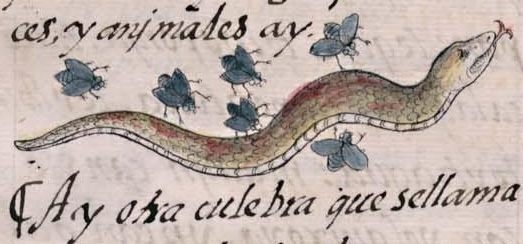 ces, y anjmales ay.
¶ Ay otra culebra que sellama